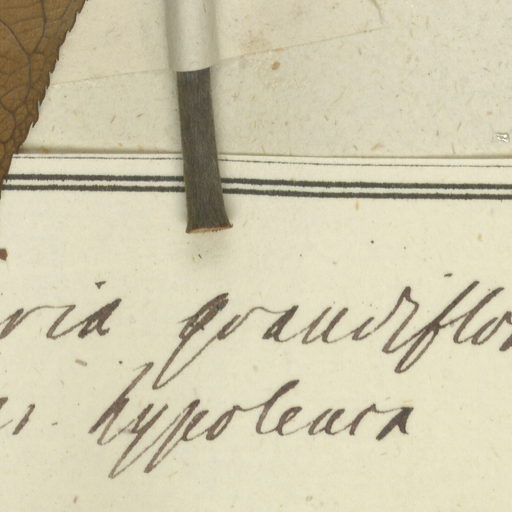 ria grandiflo
hypoleuca